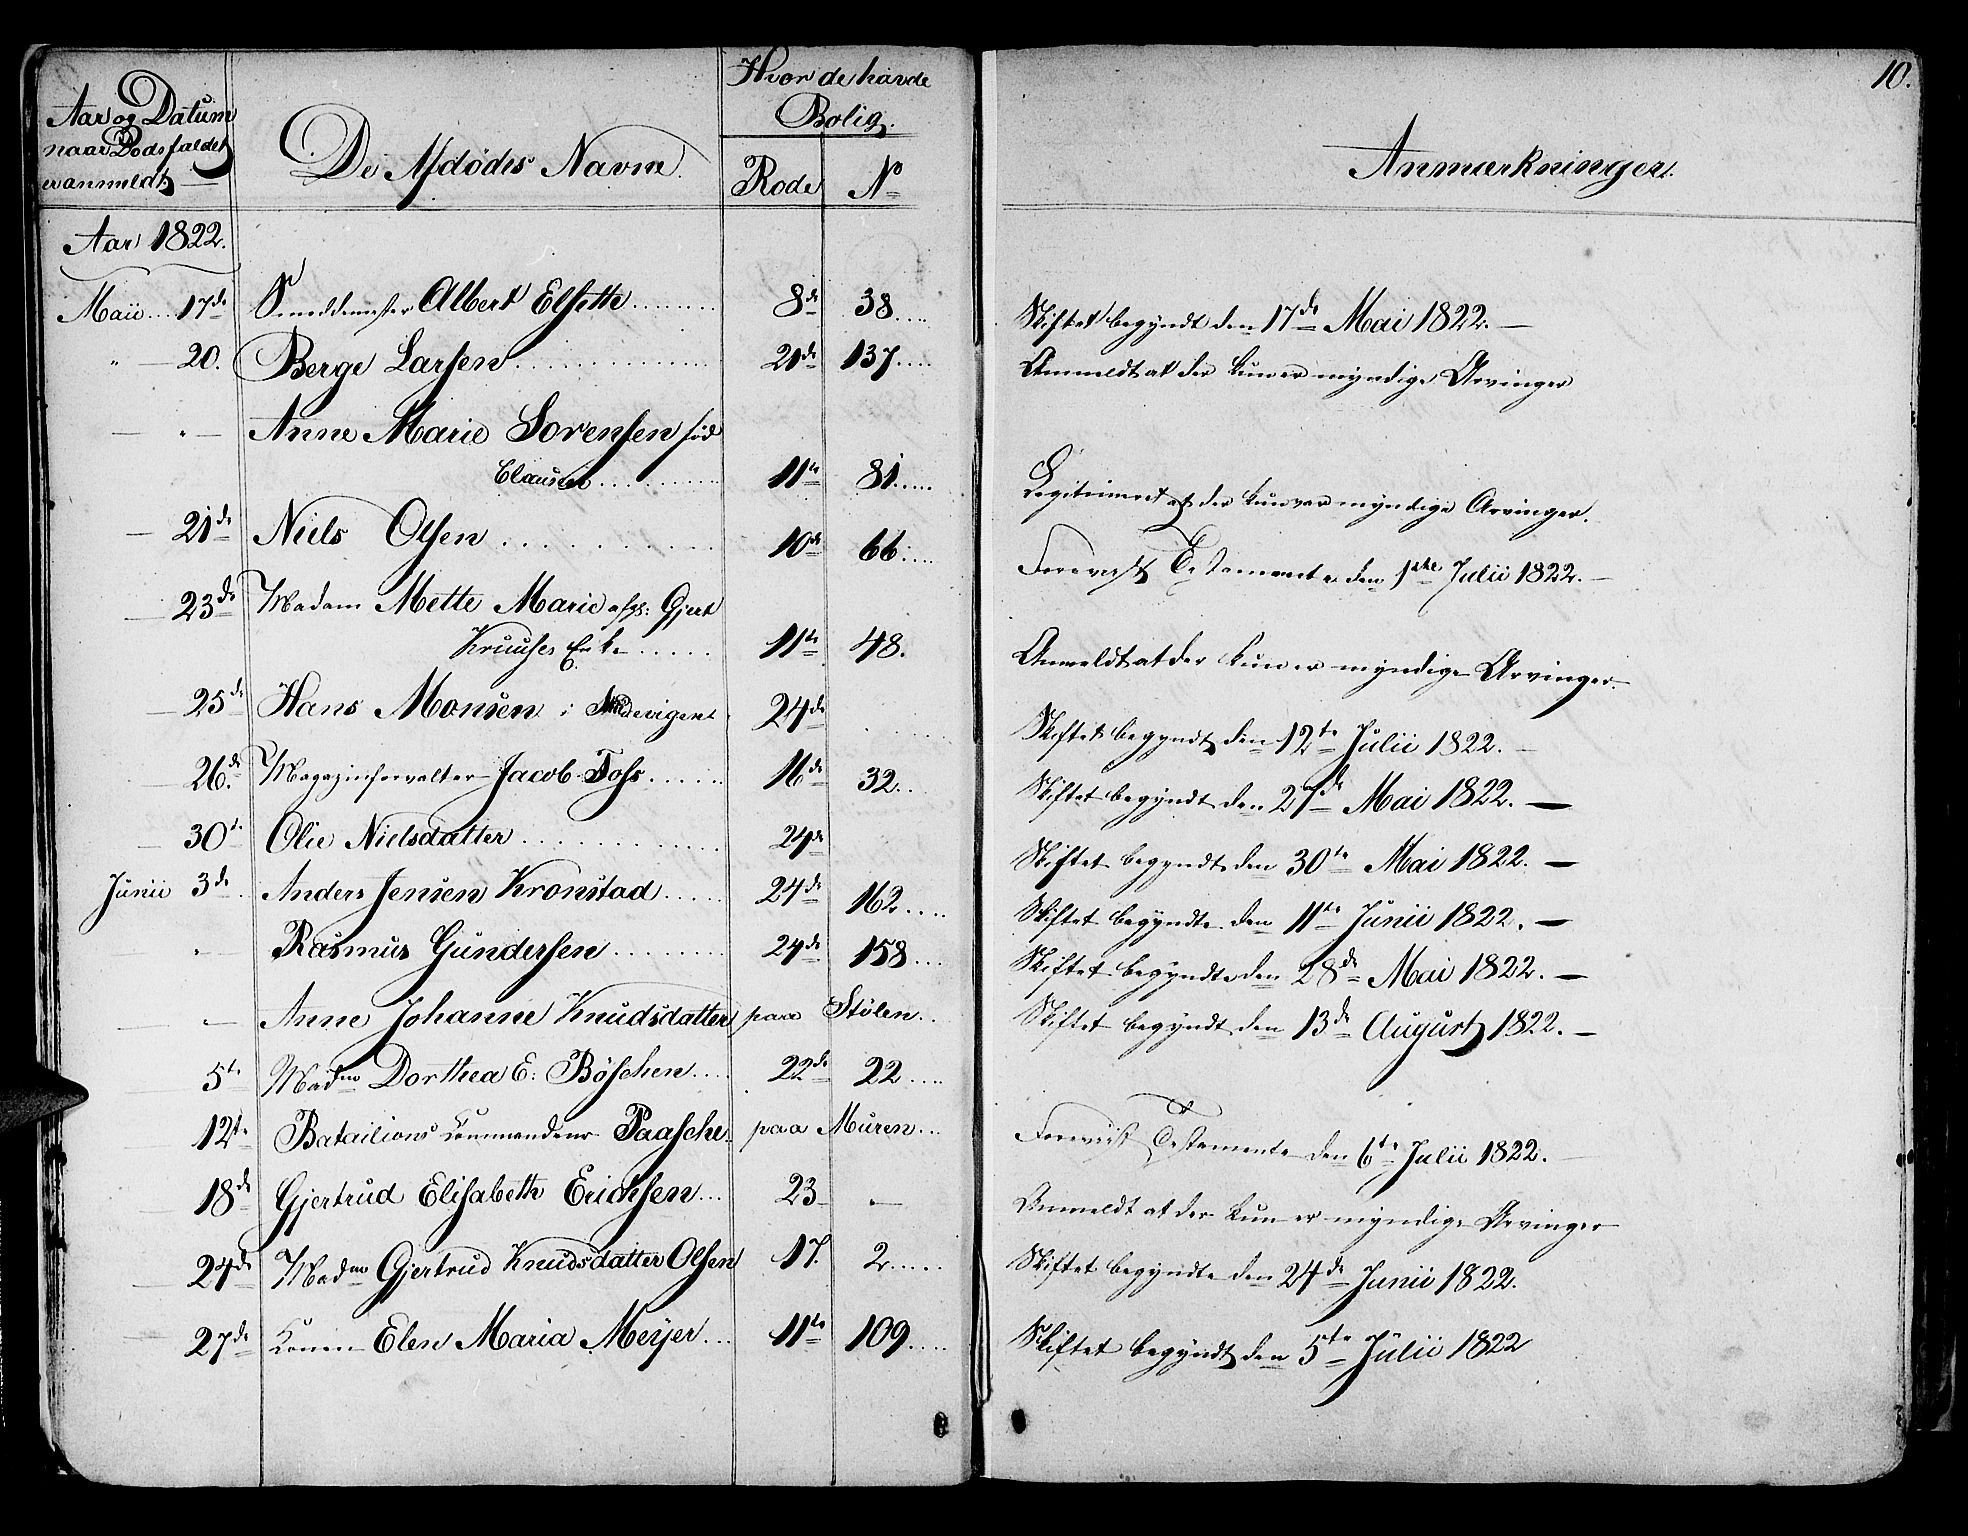 10.
Aar og Datum
naar Dødsfaldet
er anmeldt
De Afdødes Navne.
Hvor de havde
Bolig.
Rode No
Anmærkninger.
Aar 1822.
Maii 17de Smeddemester Albert Elsette 8de 38 Skiftet begyndt den 17de Mai 1822.
" 20. Berge Larsen 21de 137 Anmeldt at der kun er myndige Arvinger
" Anne Marie Sørensen fød
Clausen 11te 81 Legitimeret at der kun var myndige Arvinger.
21de Niels Olsen 10de 66 Foreviist Testamente den 1ste Julii 1822.
23de Madam Mette Marie afg: Gjert
Kruuses Enke 11te 48. Anmeldt at der kun er myndige Arvinger.
25de Hans Monsen i 24de Skiftet begyndt den 12te Julii 1822.
26de Magazinforvalter Jacob Foss 16de 32 Skiftet begyndt den 27de Mai 1822.
30te Olie Nielsdatter 24de Skiftet begyndt den 30te Mai 1822.
Junii 3de Anders Jensen Kronstad 24de 162 Skiftet begyndt den 11te Junii 1822.
" Rasmus Gundersen 24de 158 Skiftet begyndt den 28de Mai 1822.
" Anne Johanne Knudsdatter paa Stølen Skiftet begyndt den 13de August 1822.
5te Madme Dorthea E: Böschen 22de 22
12te Batailions Commandeur Paasche paa Muren Foreviist Testamente den 6te Julii 1822.
18de Gjertrud Elisabeth Erichsen 23 Anmeldt at der kun er myndige Arvinger
24de Madme Gjertrud Knudsdatter Olsen 17. 2 Skiftet begyndt den 24de Junii 1822.
27de Konen Elen Maria Meyer 11te 109 Skiftet begyndt den 5te Julii 1822